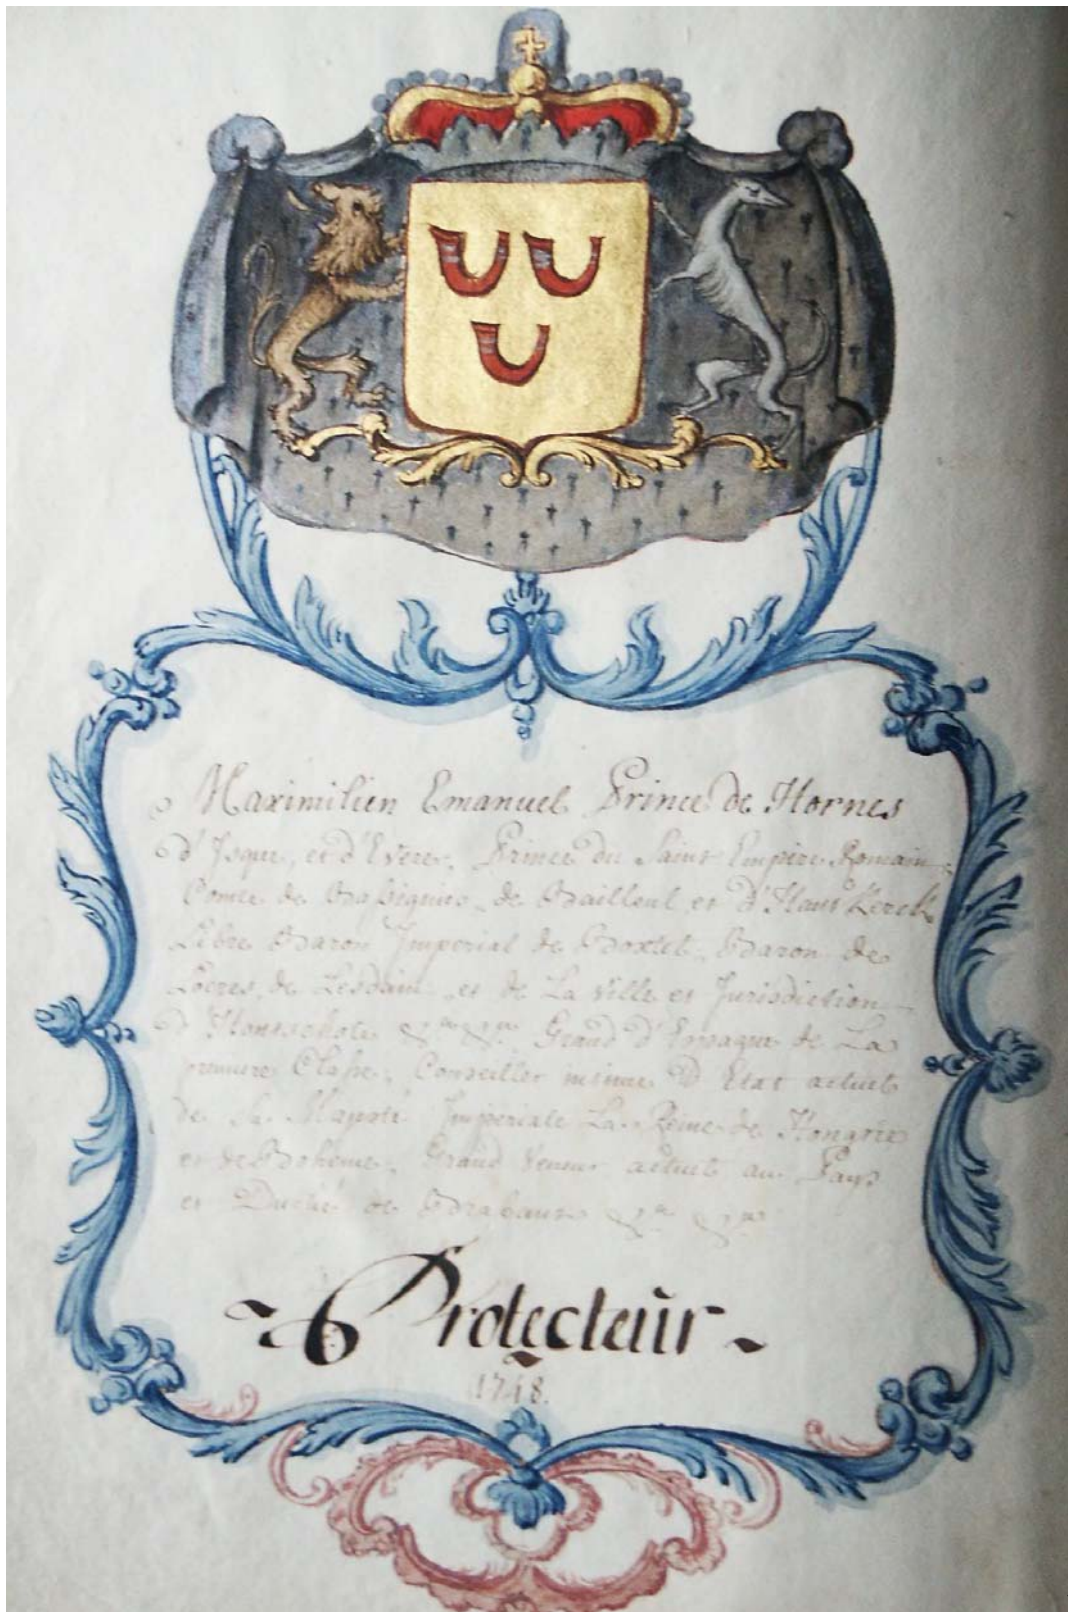 Maximilien Emanuel Prince de Hornes
d'Isque, et d'Evere, Prince du Saint Empire Romain
Comte de de Bailleul et d'Haut Kerck
Libre Baron Imperial de Boxtel, Baron de
Loeres, de Lesdain, et de La Ville et Jurisdiction
d'Honsschote Grand d'Espagne de La
premiere Classe, Conseiller intime d'Etat actuel
de Sa Majesté Imperiale La Reine de Hongrie
et de Boheme, Grand Veneur actuel au Pays
et Duché de Brabant
Protecteur
1748.